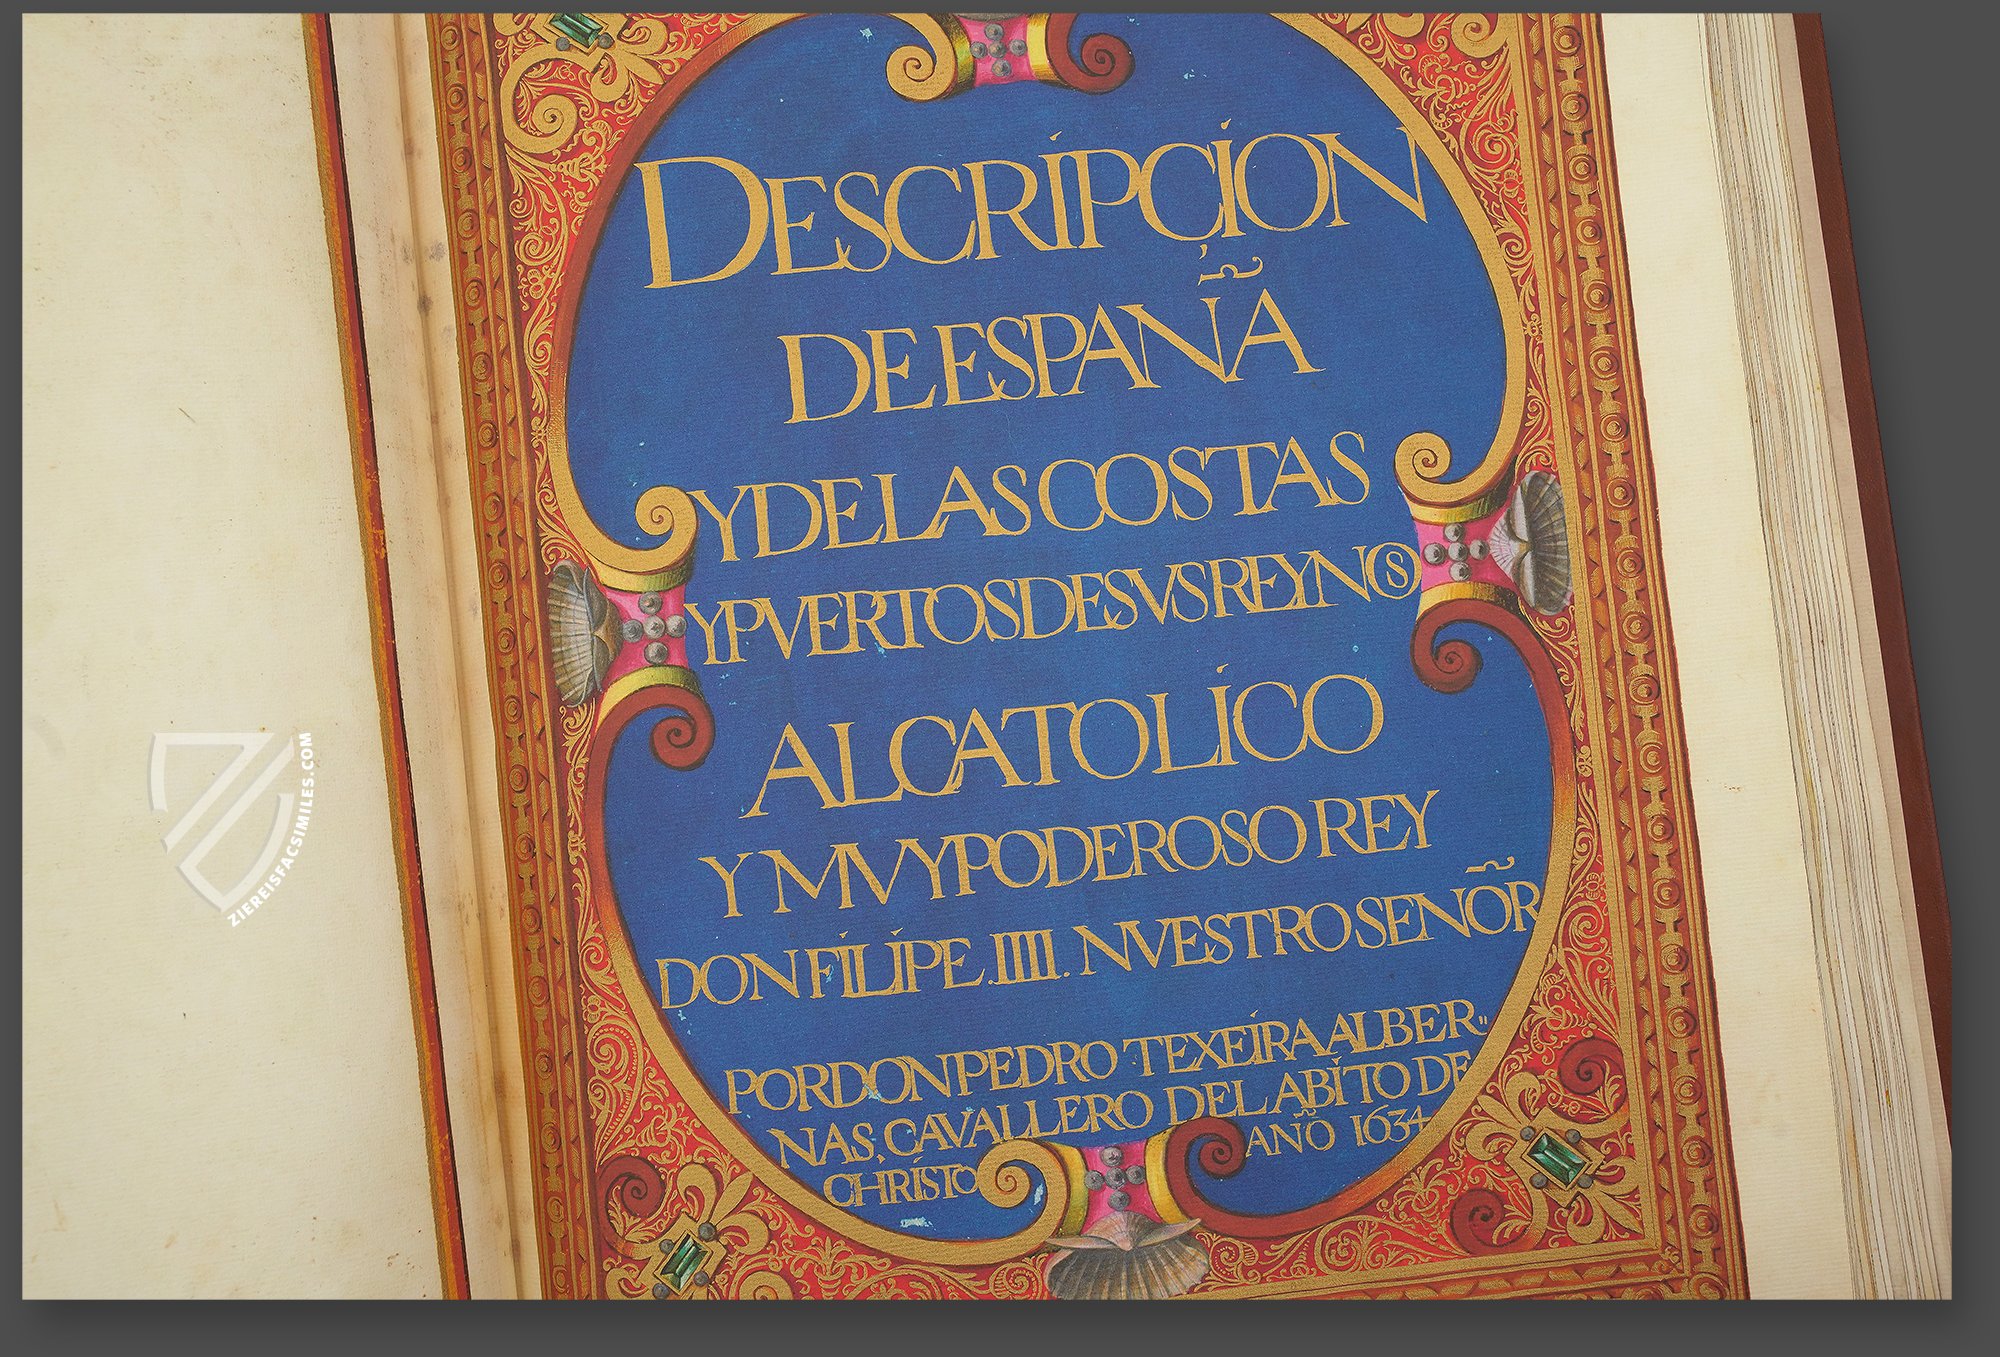 DESCRIPÇION
DE ESPAÑA
Y DE LAS COSTAS
Y PVERTOS DE SVS REYNOS
AL CATOLICO
Y MVY PODEROSO REY
DON FILIPE.IIII. NVESTRO SEÑOR
POR DON PEDRO TEXEIRA ALBER„
NAS, CAVALLERO DEL ABITO DE
CHRISTO AÑO 1634
ZIEREISFACSIMILES.COM